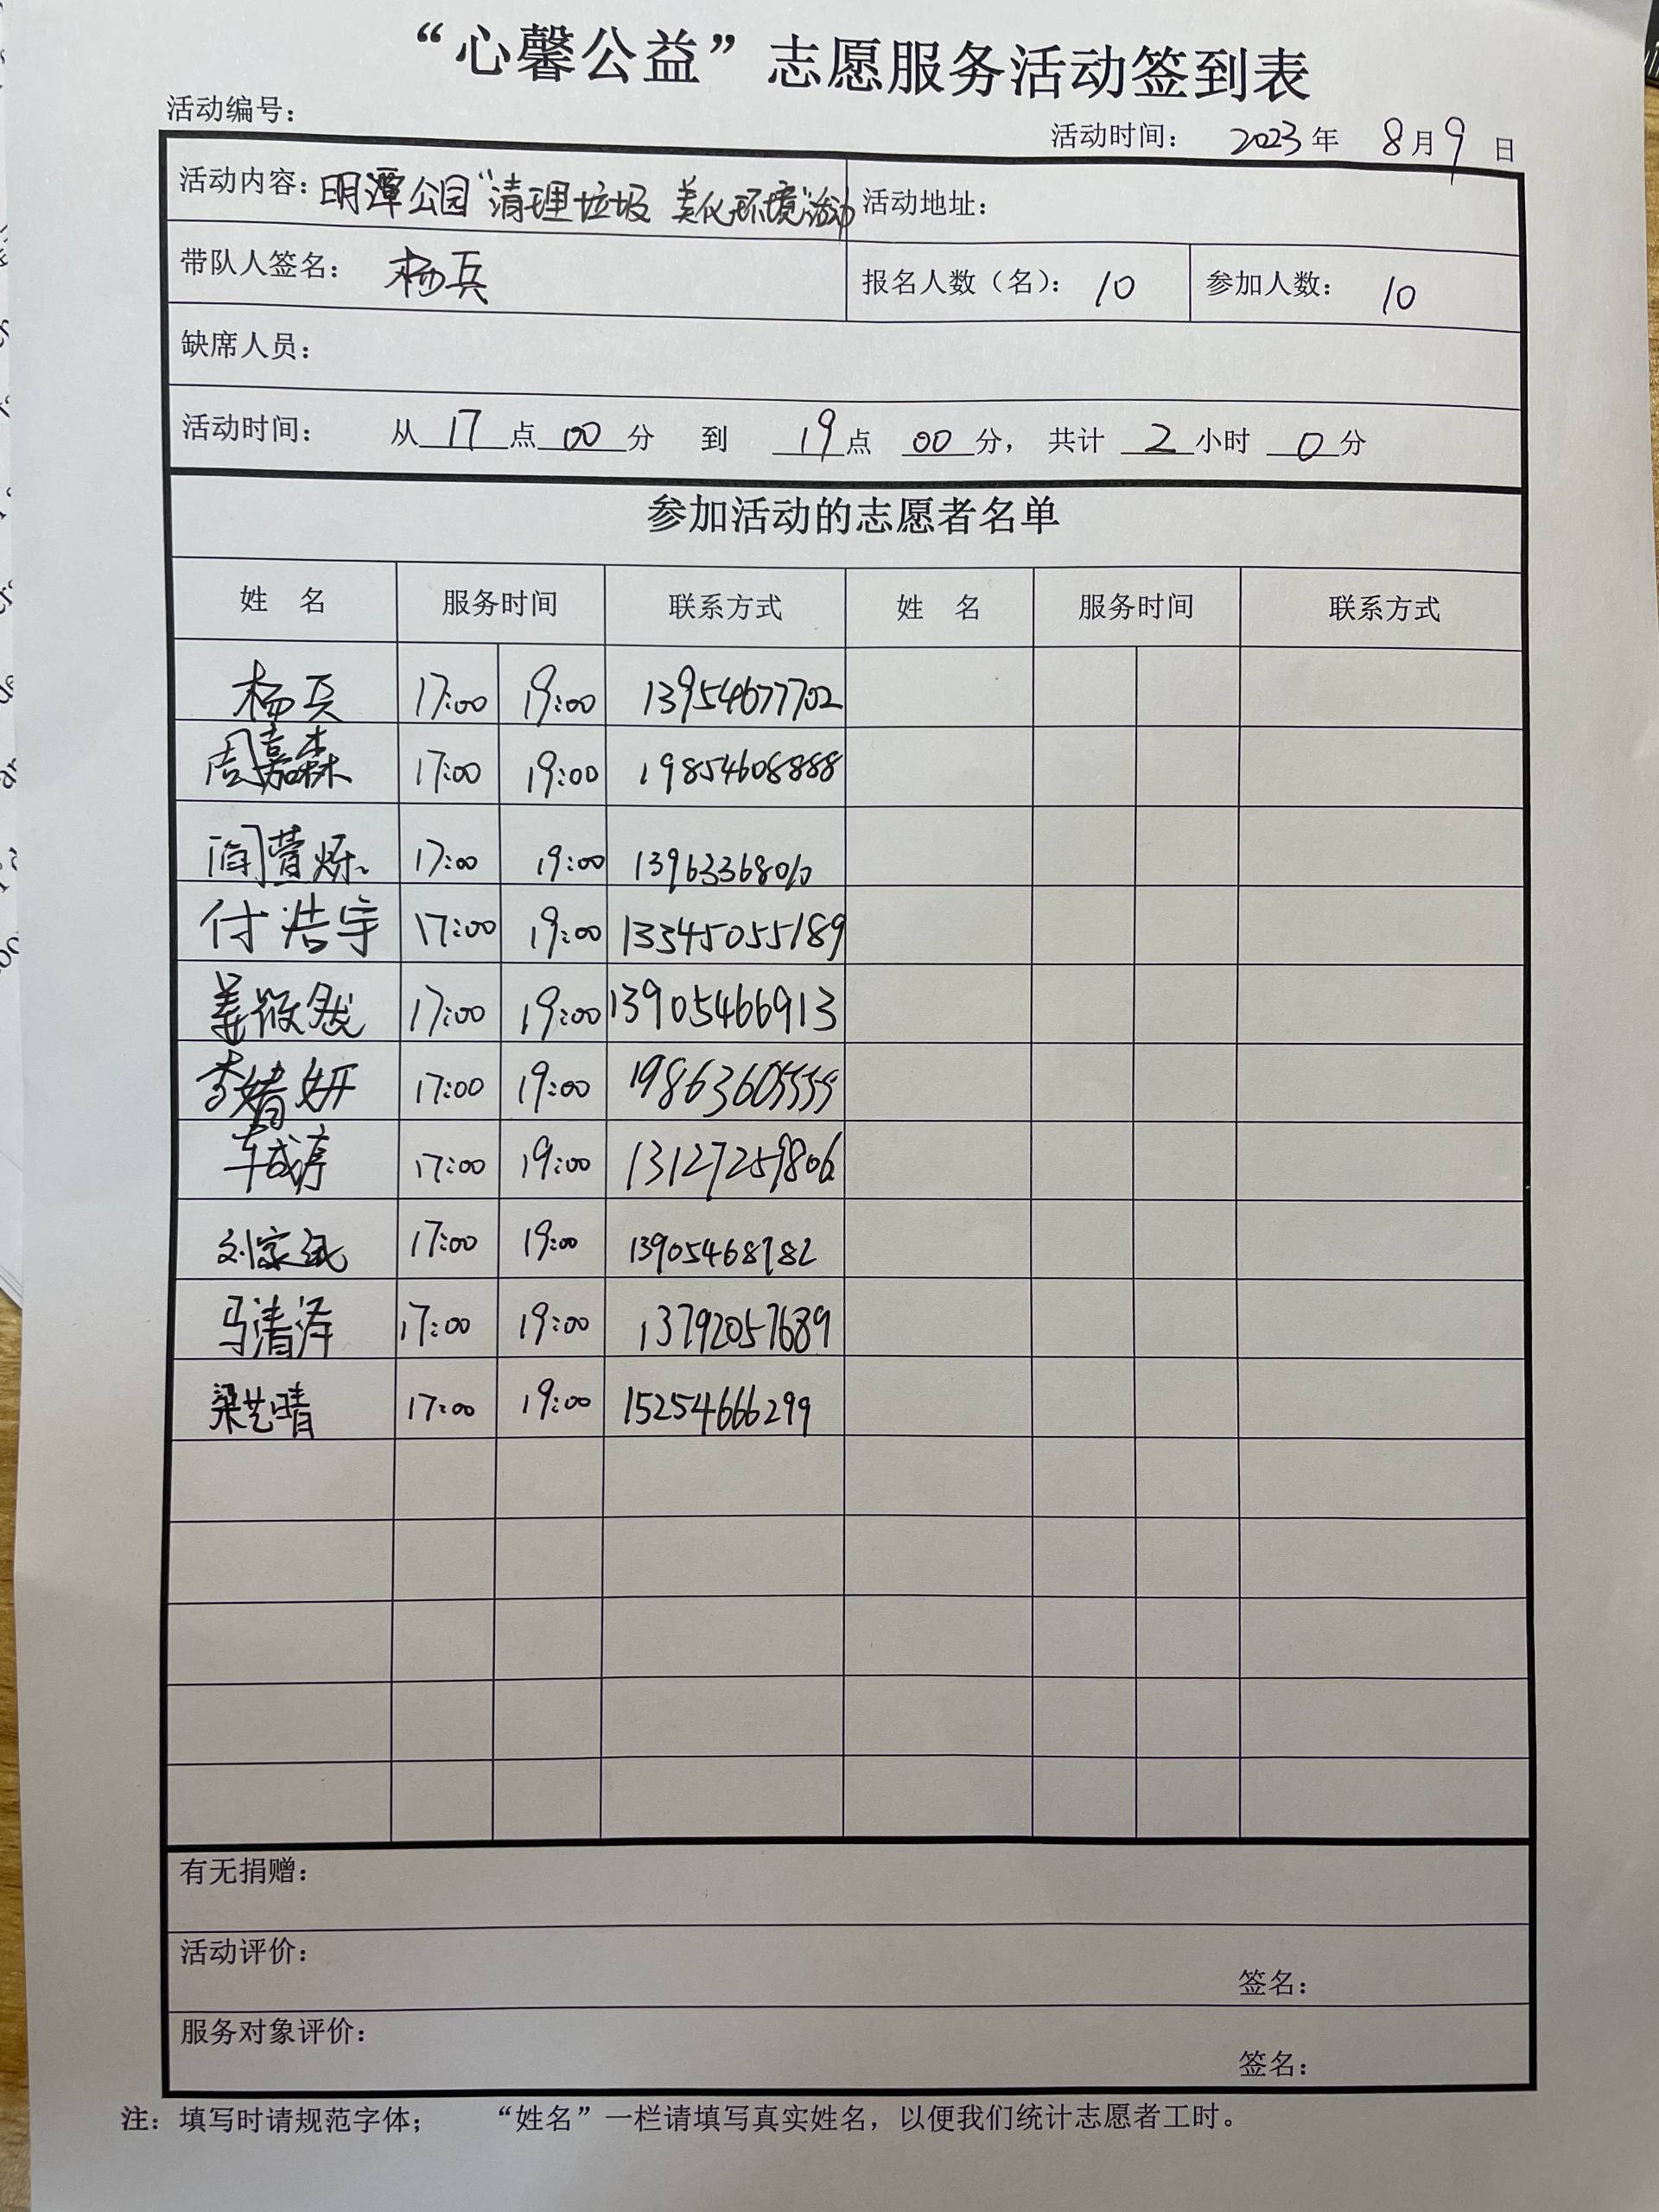 “心馨公益”志愿服务活动签到表
活动编号：
活动时间： 2023年 8月9日
活动内容：明潭公园“清理垃圾 美化环境”活动 活动地址：
带队人签名： 杨兵 报名人数（名）： 10 参加人数： 10
缺席人员：
活动时间： 从17点00分 到 19点00分， 共计2小时0分
参加活动的志愿者名单
姓 名 服务时间 联系方式 姓 名 服务时间 联系方式
杨兵 17:00 19:00 13954677702
周嘉森 17:00 19:00 19854608888
17:00 19:00 13963368010
付浩宇 17:00 19:00 13345055189
姜 17:00 19:00 13905466913
李婧妍 17:00 19:00 19863605555
车成淳 17:00 19:00 13127259806
刘家 17:00 19:00 13905468982
马清泽 17:00 19:00 13792057689
梁艺晴 17:00 19:00 15254666299
有无捐赠：
活动评价：
签名：
服务对象评价：
签名：
注：填写时请规范字体； “姓名”一栏请填写真实姓名，以便我们统计志愿者工时。